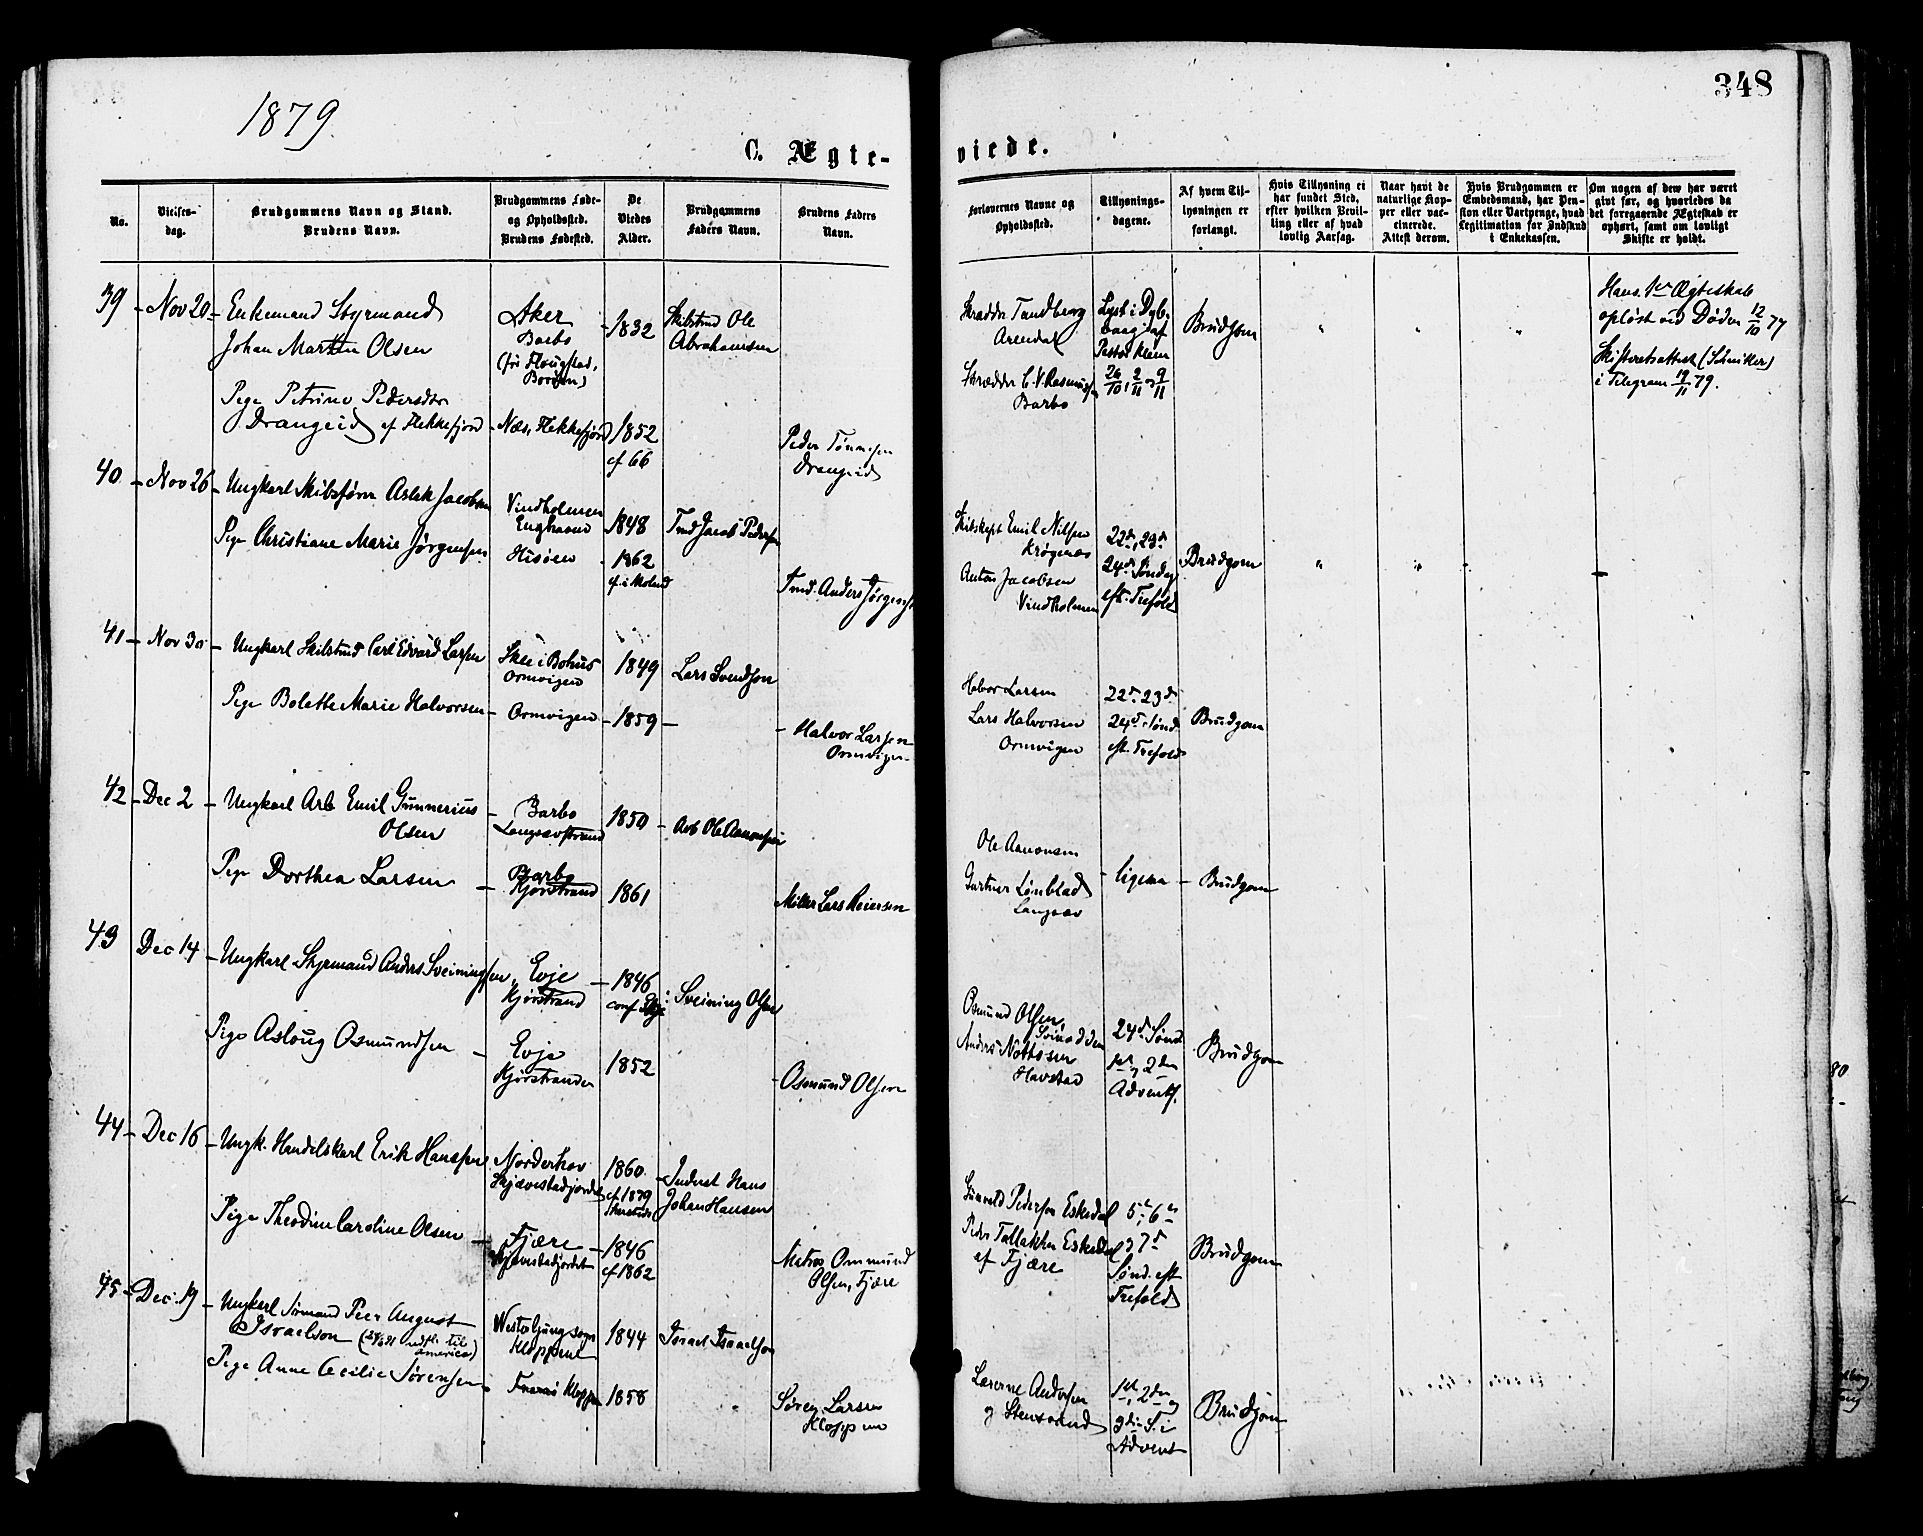 1879.
348
C. Ægte-
viede.
No.
Vielses-
dag.
Brudgommens Navn og Stand.
Brudens Navn.
Brudgommens Føde-
og Opholdssted.
Brudens Fødested.
De
Viedes
Alder.
Brudgommens
Faders Navn.
Brudens Faders
Navn.
Forlovernes Navne og
Opholdssted.
Tillysnings-
dagene.
Af hvem Til-
lysningen er
forlangt.
Hvis Tillysning ei
har fundet Sted,
efter hvilken Bevil-
ling eller af hvad
lovlig Aarsag.
Naar havt de
naturlige Kop-
per eller vac-
cinerede.
Attest derom.
Hvis Brudgommen er
Embedsmand, har Pen-
sion eller Vartpenge, hvad
Legitimation for Indskud
i Enkekassen.
Om nogen af dem har været
givt før, og hvorledes da
det foregaaende Ægteskab er
ophørt, samt om lovligt
Skifte er holdt.
39 - Nov 20 - Enkemand Styrmand
Johan Martin Olsen
Aker
Barbo
1832
Skibstmd Ole
Abrahamsen
Pige Petrine Pedersdtr
Drangeid cf Flekkefjord
Næs, Flekkefjord
1852
cf 66
Peder Tønnesen
Drangeid
Skrædder Tandberg
Arendal
Skrædder C. V. Rasmussen
Barbo
Lyst i Dyb-
vaag af
Pastor Klem
26/10, 2/11 og 9/11
Brudgom
Hans 1ste Ægteskab
opløst ved Døden 12/10 77
Skifteretsattest
i Telegram 19/11 79.
40 - Nov 26 - Ungkarl Skibsfører Aslak Jacobsen
Vindholmen
Enghavn
1848
Tmd Jacob Pedersen
Pige Christiane Marie Jørgensen
Hisøen
1862
cf. i Moland
Tmd. Anders Jørgensen
Skibskapt Emil Nilsen
Krøgenæs
Anton Jacobsen
Vindholmen
22de, 23de
24de Søndag
eft. Trefold
Brudgom
41 - Nov 30 - Ungkarl Skibstmd Carl Edvard Larsen
Skee i Bohus
Ormvigen
1849
Lars Svendsen
Pige Bolette Marie Halvorsen - Ormvigen - 1859 -
Halvor Larsen
Ormvigen
Halvor Larsen
Lars Halvorsen
Ormvigen
22de 23de
24de Sønd
eft. Trefold
Brudgom
42 - Dec 2 - Ungkarl Arb Emil Gunnerius
Olsen
Barbo
Langsævstrand
1850 - Arb Ole Aanonsen
Pige Dorthea Larsen
Barbo
Kjørstrand
1861
Møller Lars Reiersen
Ole Aanonsen
Gartner Lønblad
Langsæv
ligesaa - Brudgom
43 Dec 14 - Ungkarl Styrmand Anders Sveiningsen
Evje
Kjørstrand
1846
conf. Evje
Sveining Olsen
Pige Aslaug Osmundsen
Evje
Kjørstranden
1852
Osmund Olsen
Osmund Olsen
Anders Nottosen
Havstad
24de Sønd
1ste, 2den
Advents.
Brudgom
44 - Dec 16 - Ungk. Handelskarl Erik Hansen
Norderhov
Skjævestadjordet
1860
cf. 1879
Inderst Hans
Johan Hansen
Pige Theodine Caroline Olsen
Fjære
Skjævestadjordet
1846
cf 1862
Matros Ommund
Olsen, Fjære
Gunvald Pedersen Eskedal
Peder Tallaksen Eskedal
af Fjære
5te, 6te
og 7de
Sønd. eft
Trefold
Brudgom
45 - Dec. 19 - Ungkarl Sømand Peer August
Israelson (udfl. til
America)
Kloppene
1844
Israel Israelson
Pige Anne Cecilie Sørensen
1858
Søren Larsen
Kloppene
Lærerne Andersen
og Stensvand
1ste, 2den og
3die S. i
Advent
Brudgom